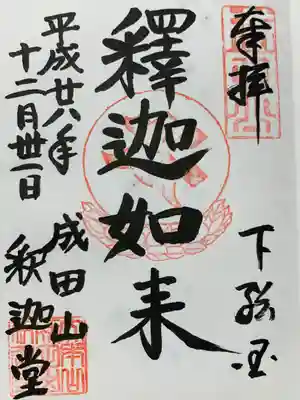 奉拝
下総国
釋迦如来
平成廿六年
十二月卅一日
成田山
釈迦堂